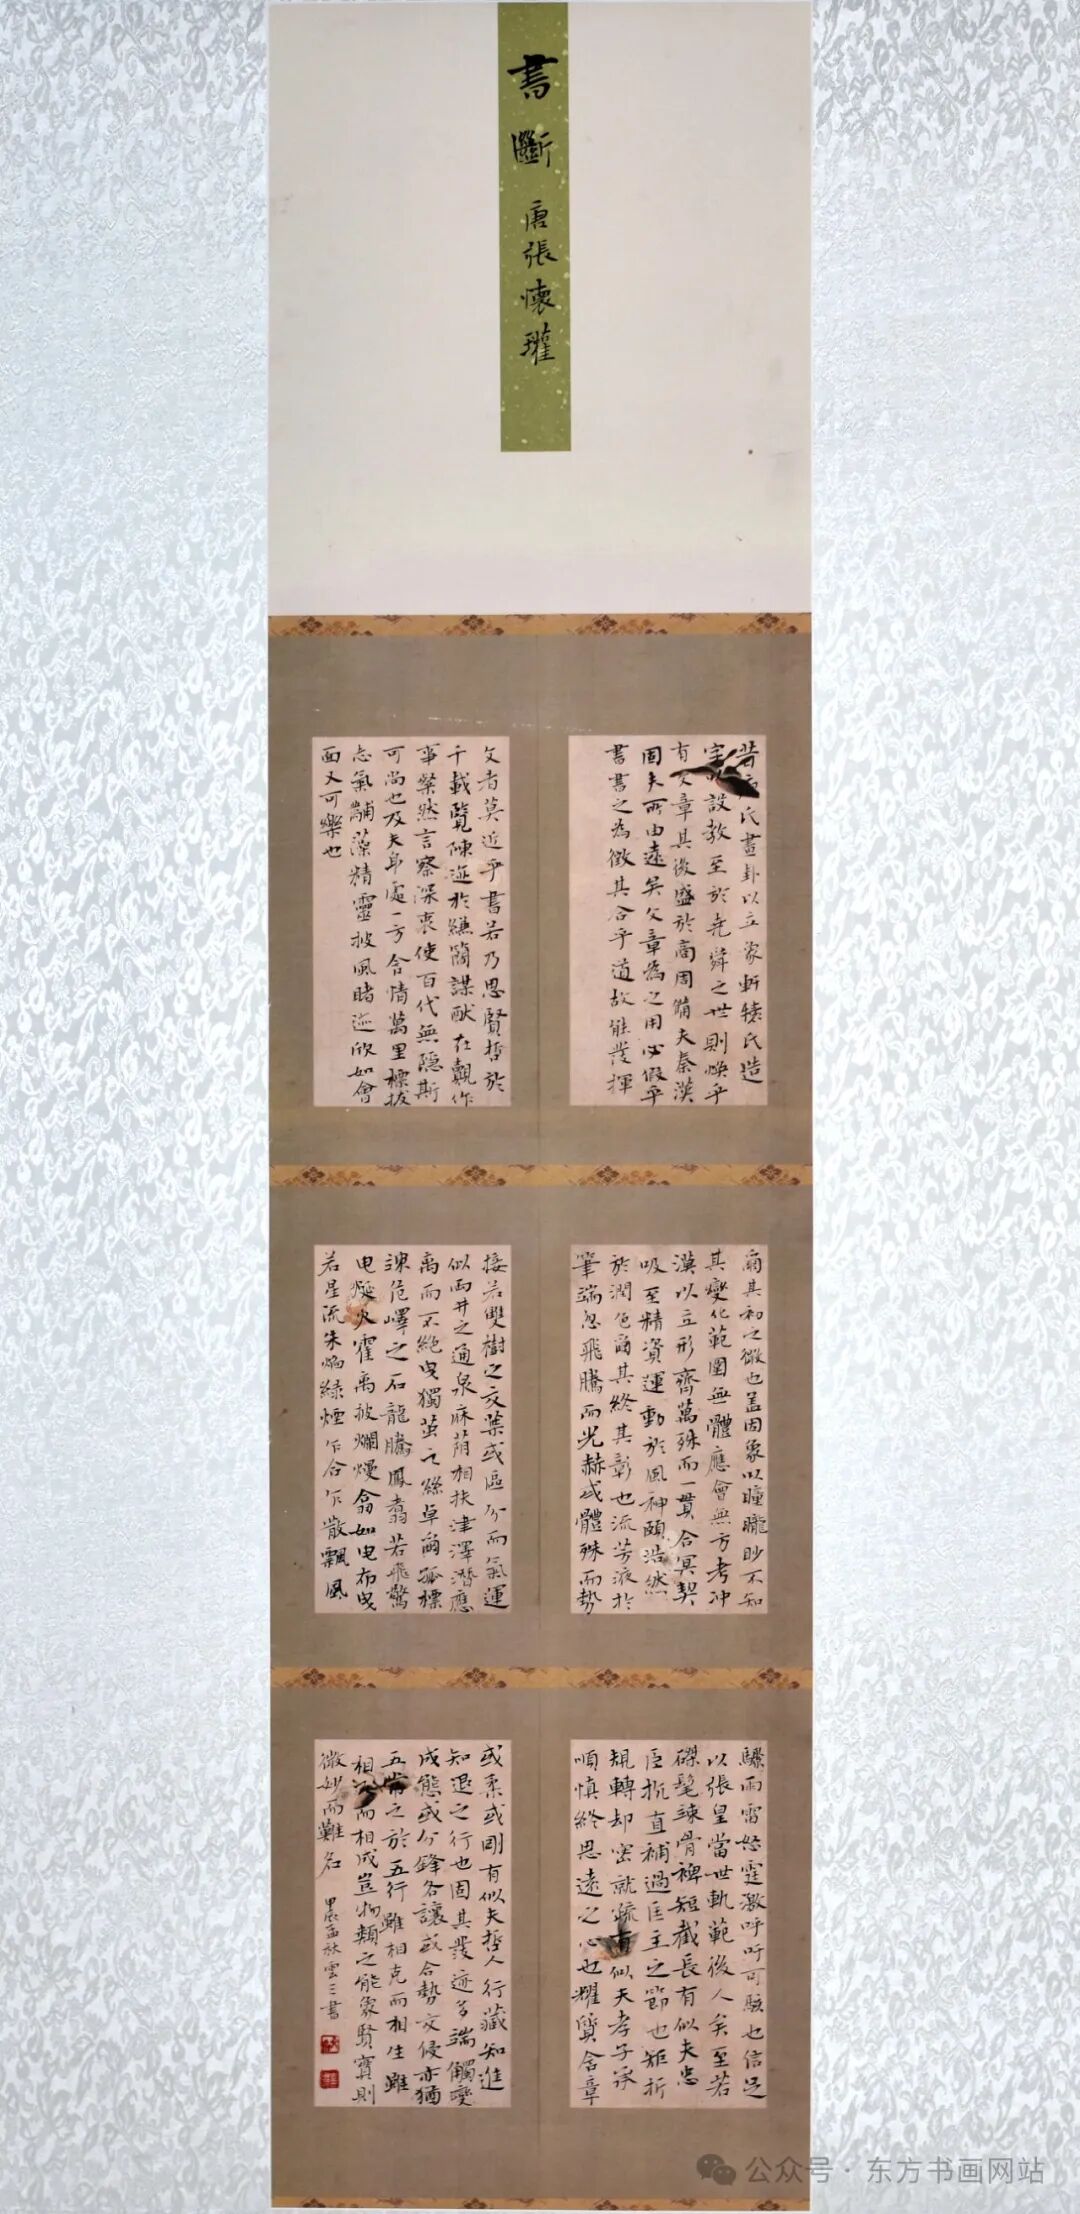 書斷 唐張懷瓘
氏畫卦以立象軒轅氏造
字設教至於堯舜之世則煥乎
有文章其後盛於商周備夫秦漢
固夫所由遠矣文章為之用必假乎
書書之為徵其合乎道故能發揮
文者莫近乎書若乃思賢哲於
千載覽陳迹於縑簡謀猷在覿作
事粲然言察深衷使百代無隱斯
可尚也及夫身處一方含情萬里標拔
志氣黼藻精靈披風睹迹欣如會
面又可樂也
爾其初之微也蓋因象以瞳矓眇不知
其變化範圍無體應會無方考沖
漠以立形齊萬殊而一貫合冥契
吸至精資運動於風神頤浩然
於潤色爾其終其彰也流芳液於
筆端忽飛騰而光赫或體殊而勢
接若雙樹之交葉或區分而氣運
似兩井之通泉麻蔭相扶津澤潛應
离而不絕曳獨繭之絲卓爾孤標
竦危峄之石龍騰鳳翥若飛驚
电烻火霍离披爛熳翕如电布曳
若星流朱焰綠煙乍合乍散飄風
驟雨雷怒霆激呼吁可駭也信足
以張皇當世軌範後人矣至若
磔髦竦骨裨短截長有似夫忠
臣抗直補過匡主之節也矩折
規轉却密就疏有似夫孝子承
順慎終思遠之心也耀質含章
或柔或剛有似夫哲人行藏知進
知退之行也固其發迹多端觸變
成態或分鋒各讓或合勢交侵亦猶
五常之於五行雖相克而相生雖
相而相成豈物類之能象賢實則
微妙而難名 甲辰孟秋雲三書
公众号·东方书画网站